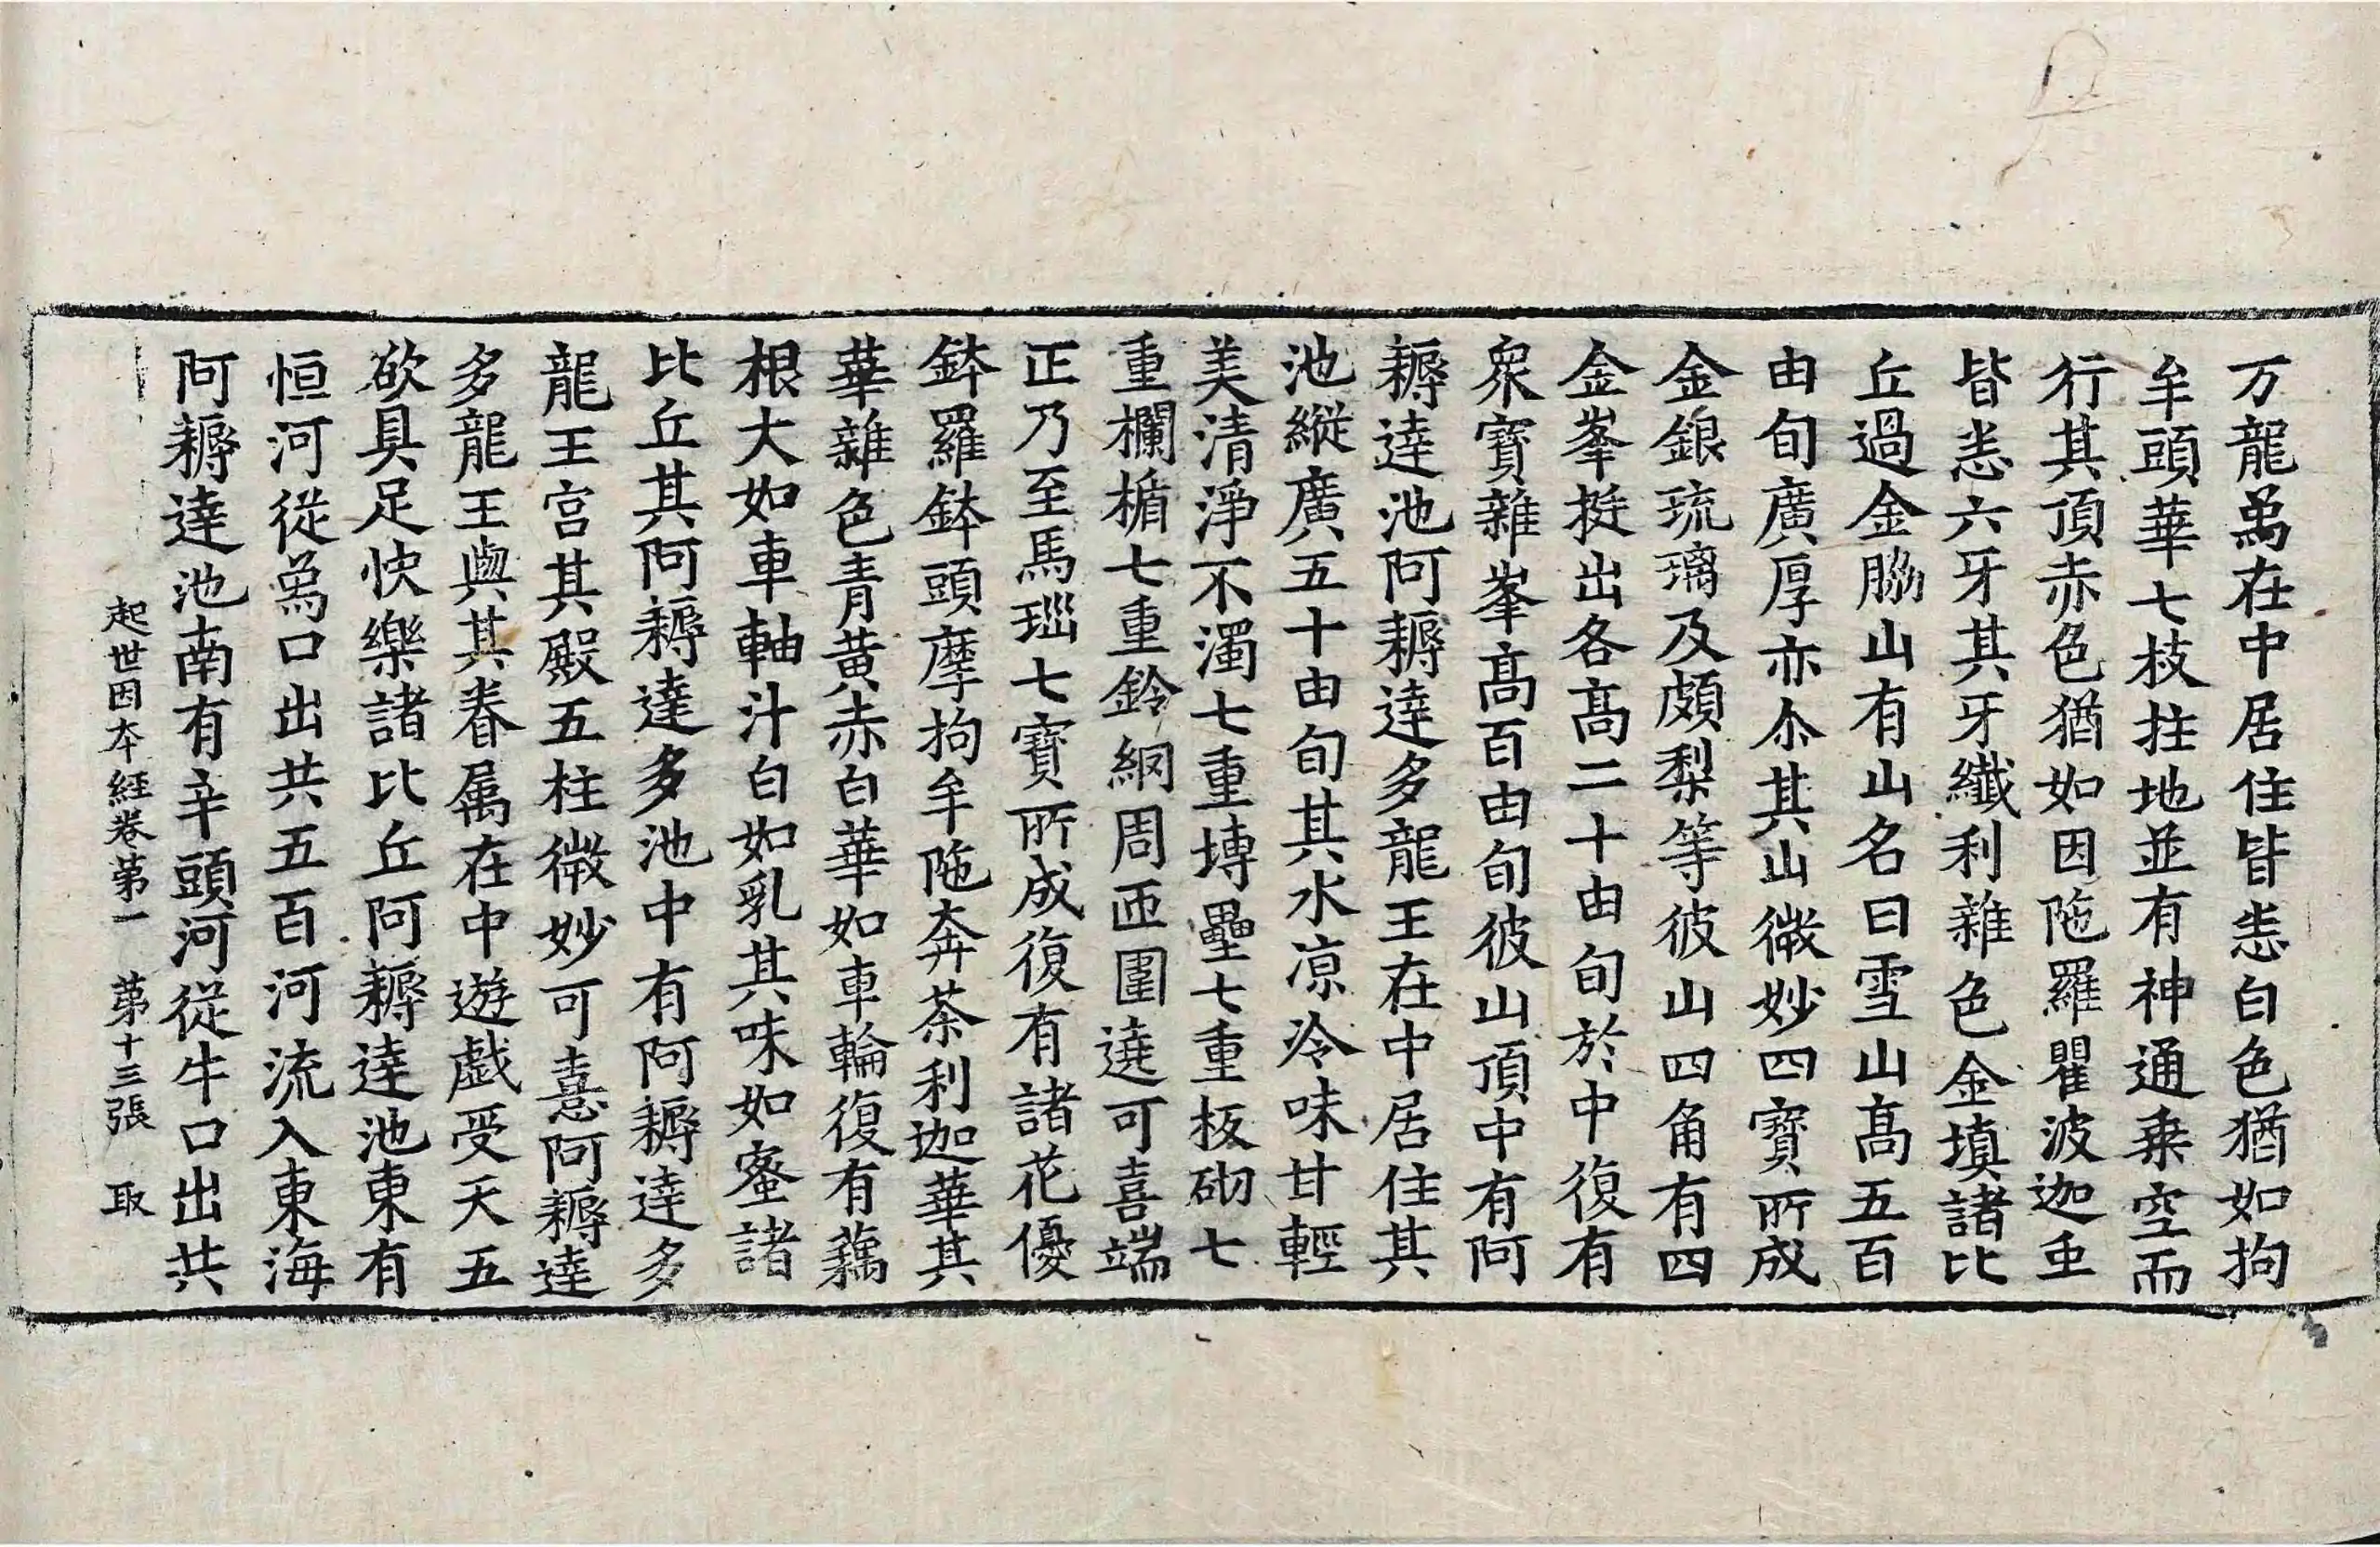 万龍𤉢在中居住皆悉白色猶如拘
牟頭華七枝拄地並有神通乗空而
行其頂赤色猶如因陁羅瞿波迦虫
皆悉六牙其牙纖利雜色金填諸比
丘過金脇山有山名曰雪山髙五百
由旬廣厚亦尒其山微妙四寶所成
金銀琉璃及頗梨等彼山四角有四
金峯挺出各髙二十由旬於中復有
衆寶雜峯髙百由旬彼山頂中有阿
耨達池阿耨達多龍王在中居住其
池縱廣五十由旬其水凉冷味甘輕
美清淨不濁七重塼壘七重板砌七
重欄楯七重鈴網周匝圍遶可喜端
正乃至馬瑙七寶所成復有諸花優
鉢羅鉢頭摩拘牟陁奔茶利迦華其
華雜色青黄赤白華如車輪復有藕
根大如車軸汁白如乳其味如蜜諸
比丘其阿耨達多池中有阿耨達多
龍王宫其殿五柱微妙可憙阿耨達
多龍王與其眷属在中遊戯受天五
欲具足快樂諸比丘阿耨達池東有
恒河從𤉢口出共五百河流入東海
阿耨達池南有辛頭河從牛口出共
起世因夲經卷苐一　苐十三張　取